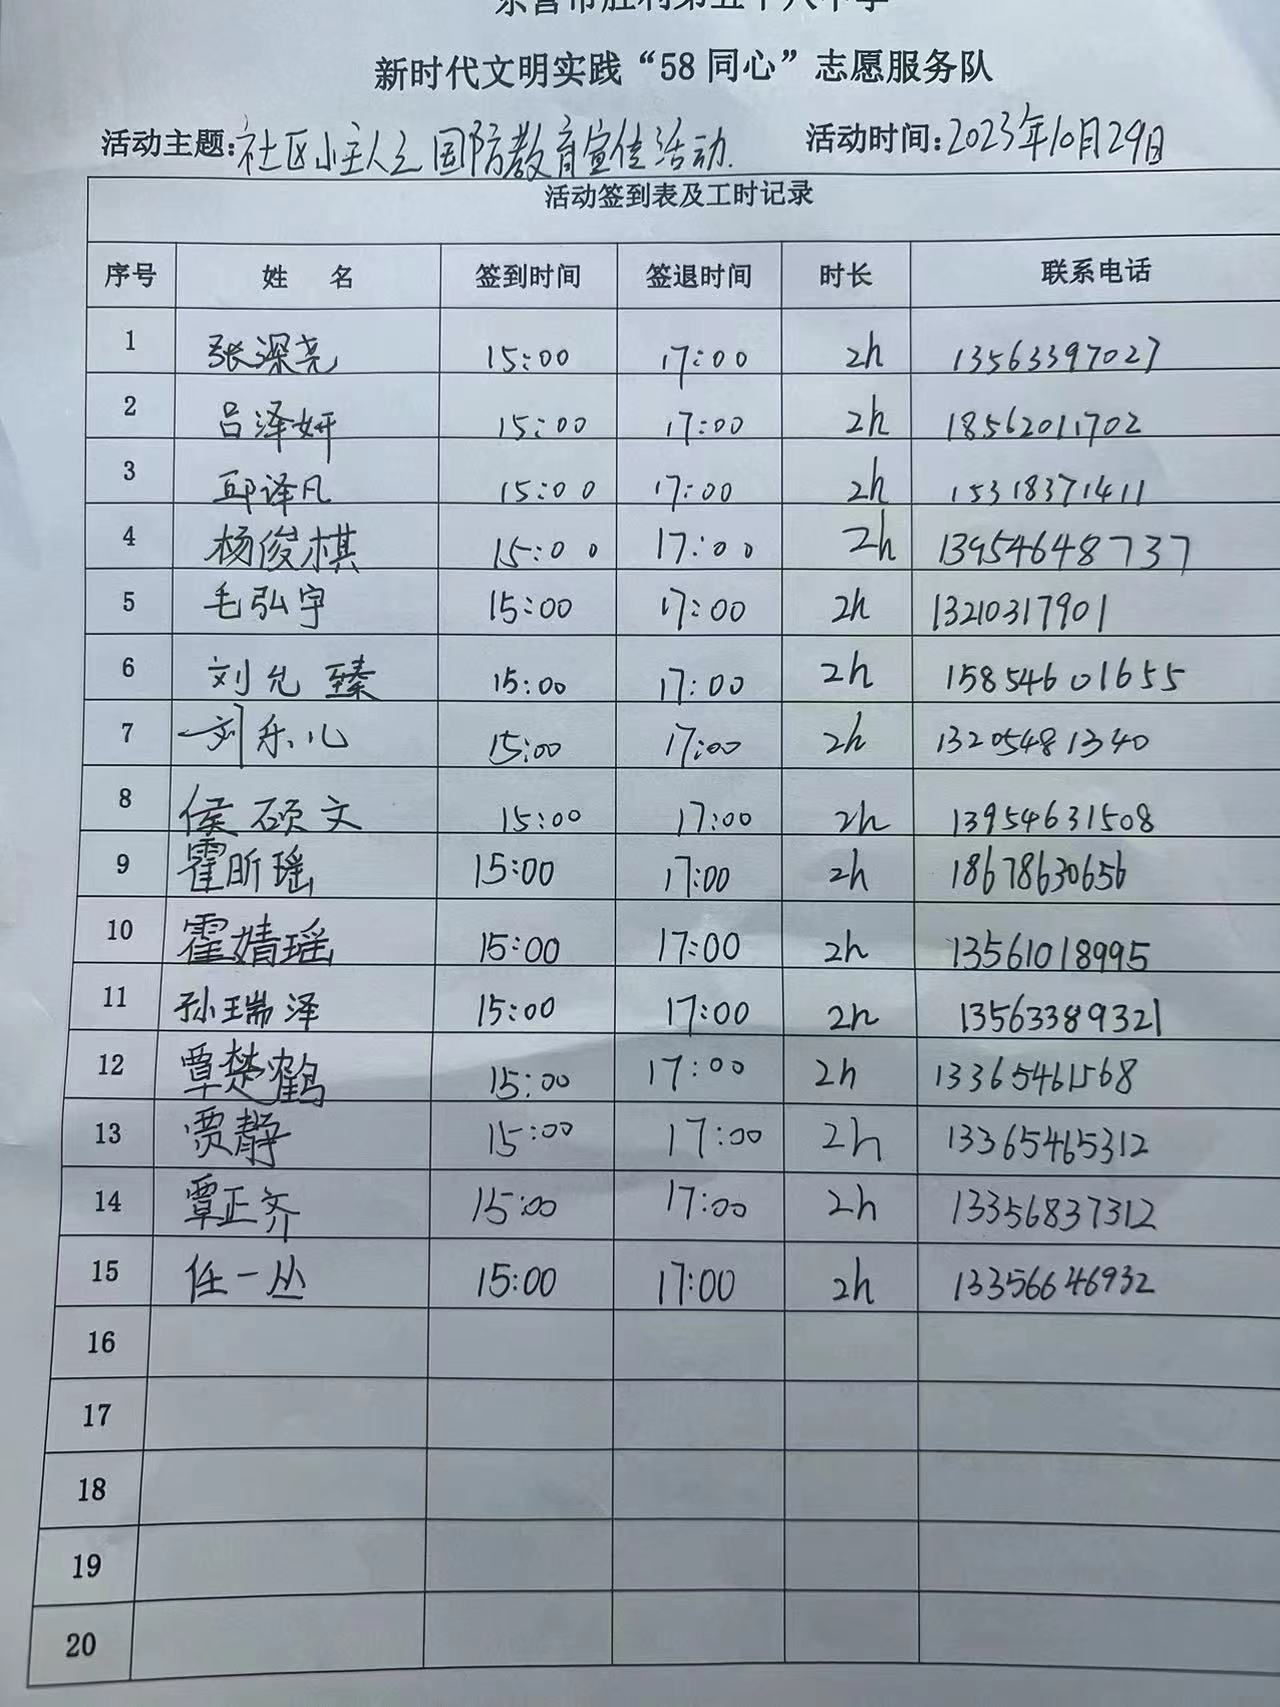 东营市胜利第五十八中学
新时代文明实践“58 同心”志愿服务队
活动主题:社区小主人之国防教育宣传活动. 活动时间:2023年10月29日
活动签到表及工时记录
序号 姓 名 签到时间 签退时间 时长 联系电话
1 张深尧 15:00 17:00 2h 13563397027
2 吕泽妍 15:00 17:00 2h 18562011702
3 邱译凡 15:00 17:00 2h 15318371411
4 杨俊棋 15:00 17:00 2h 13954648737
5 毛弘宇 15:00 17:00 2h 13210317901
6 刘允臻 15:00 17:00 2h 15854601655
7 刘乐儿 15:00 17:00 2h 13205481340
8 侯硕文 15:00 17:00 2h 13954631508
9 霍昕瑶 15:00 17:00 2h 18678630656
10 霍婧瑶 15:00 17:00 2h 13561018995
11 孙瑞泽 15:00 17:00 2h 13563389321
12 覃楚鹤 15:00 17:00 2h 13365461568
13 贾静 15:00 17:00 2h 13365465312
14 覃正齐 15:00 17:00 2h 13356837312
15 任一丛 15:00 17:00 2h 13356646932
16
17
18
19
20